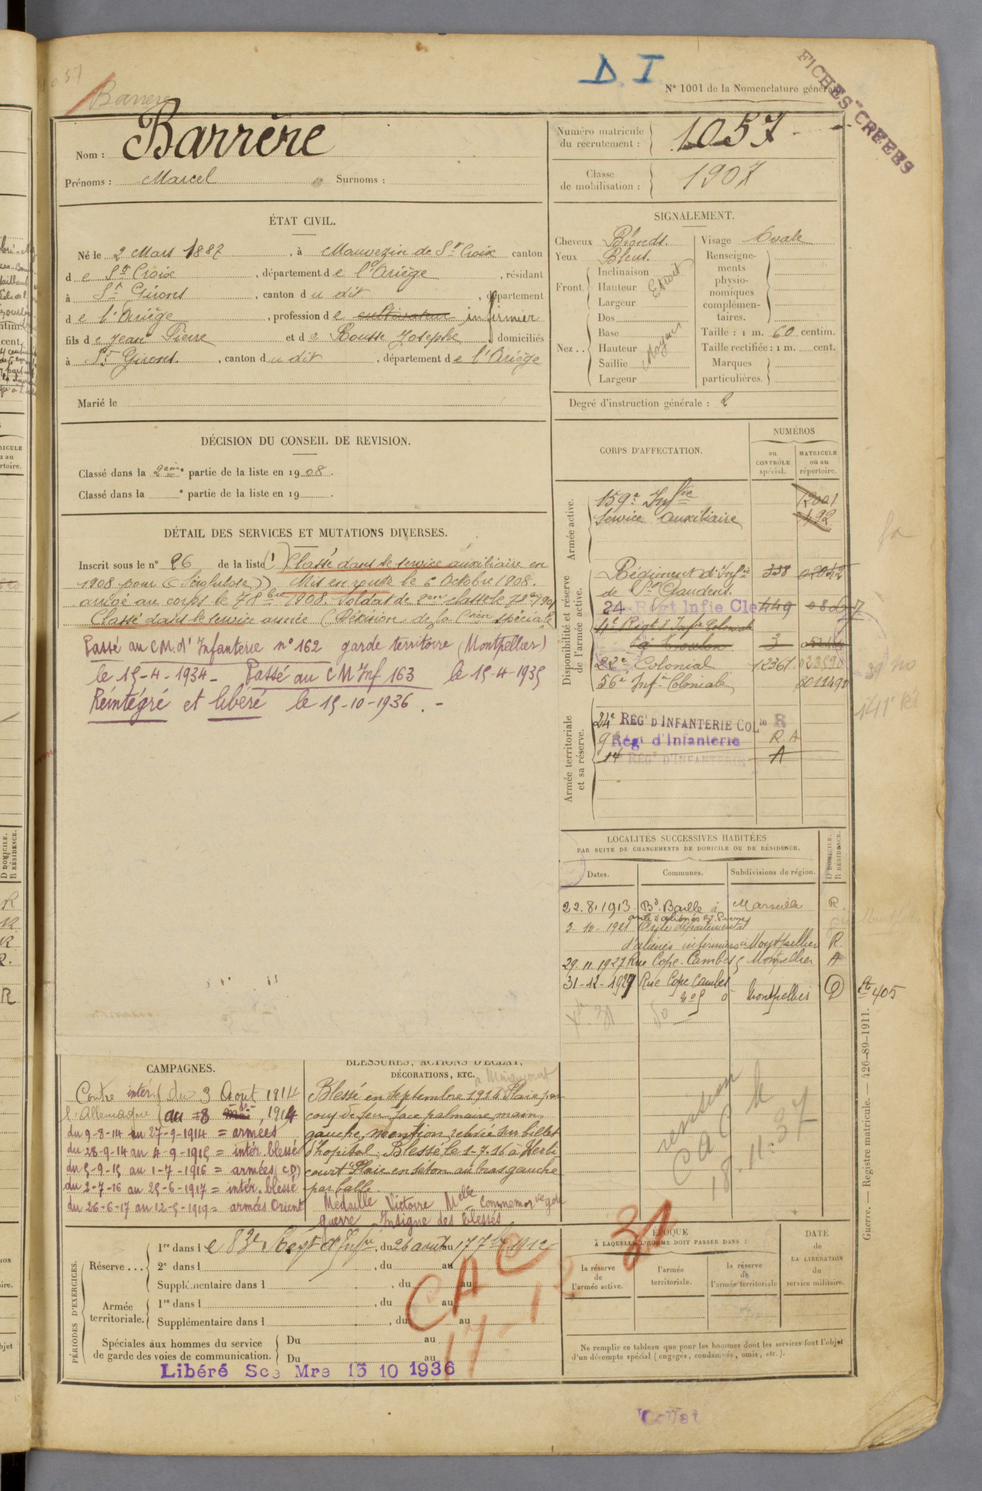 Barrère
D I
N° 1001 de la Nomenclature générale
FICHES CREEES
Nom : Barrère
Prénoms : Marcel Surnoms :
Numéro matricule du recrutement : 1057
Classe de mobilisation : 1907
ÉTAT CIVIL.
Né le 2 Mars 1887, à Mauvezin de Ste Croix canton
d e Ste Croix, département d e l'Ariège, résidant
à St Girons, canton d u dit, département
d e l'Ariège, profession d e cultivateur infirmier
fils d e Jean Pierre et d e Rousse Josèphe domiciliés
à St Girons, canton d u dit, département d e l'Ariège
Marié le
SIGNALEMENT.
Cheveux Blonds. Visage Ovale
Yeux Bleus.
Front. Inclinaison
Hauteur Etroit
Largeur
Nez.. Dos
Base
Hauteur Moyen
Saillie
Largeur
Renseignements physionomiques complémentaires.
Taille : 1 m. 60 centim.
Taille rectifiée : 1 m. cent.
Marques particulières.
Degré d'instruction générale : 2
DÉCISION DU CONSEIL DE REVISION.
Classé dans la 2ème partie de la liste en 1908.
Classé dans la e partie de la liste en 19
DÉTAIL DES SERVICES ET MUTATIONS DIVERSES.
Inscrit sous le n° 26 de la liste (1) Classé dans le service auxiliaire en
1908 pour (Scrofulose)) Mis en route le 6 Octobre 1908.
arrivé au corps le 7 8bre 1908. Soldat de 2me classe le
Classé dans le service armée (Décision de la Cion spéciale
Passé au C.M. d'Infanterie n° 162 garde territoire (Montpellier)
le 15-4-1934 - Passé au CM Inf 163 le 15-4-1935
Réintégré et libéré le 15-10-1936. -
CORPS D'AFFECTATION.
NUMÉROS
au CONTRÔLE spécial.
MATRICULE ou au répertoire.
Armée active.
159e Infrie
Service auxiliaire
Disponibilité et réserve de l'armée active.
Régiment d'Infie
de St Gaudens
24 Régt Infie Cle 449
4e Régt d'Infie Coloniale
à Toulon 3
22e Colonial
56e Infie Coloniale
Armée territoriale et sa réserve.
24e REGt D'INFANTERIE COLle R
9 Régt d'Infanterie R A
14 REGt D'INFANTERIE A
LOCALITÉS SUCCESSIVES HABITÉES
PAR SUITE DE CHANGEMENTS DE DOMICILE OU DE RÉSIDENCE.
Dates. Communes. Subdivisions de région. D DOMICILE. R RÉSIDENCE.
22.8.1913 Bd Baille à Marseille R.
3-10-1921 Asile départemental
d'aliénés infirmier Montpellier R.
29.11.1927 Rue Cope-Cambes 5 Montpellier
31-12-1929 Rue Cope Cambes Montpellier D
405
CAMPAGNES.
Contre l'Allemagne intér. du 3 Août 1914
au 8 1914
du 9-8-14 au 27-9-1914 = armées
du 28-9-14 au 4-9-1915 = intér. blessé
du 5-9-15 au 1-7-1916 = armées
du 2-7-16 au 25-6-1917 = intér. blessé
du 26-6-17 au 12-5-1919 = armées Orient
BLESSURES, ACTIONS D'ÉCLAT, DÉCORATIONS, ETC.
Blessé en Septembre 1914 Plaie par
coup de feu face palmaire main
gauche, mention relevée sur billet
d'hôpital. Blessé le 1-7-16 à Herbécourt
Plaie en séton au bras gauche
par balle.
Médaille Victoire Melle Commemorve gde
guerre Insigne des blessés
revision
CAC
18.11.37
PÉRIODES D'EXERCICES.
Réserve... 1re dans l e 83e Regt d'Infie, du 26 août au 17 7bre 1912
2e dans l , du au
Supplémentaire dans l , du au
Armée territoriale. 1re dans l , du au
Supplémentaire dans l , du au
Spéciales aux hommes du service de garde des voies de communication. Du au
Du au
Libéré Sce Mre 15 10 1936
CAC
31
ÉPOQUE
À LAQUELLE L'HOMME DOIT PASSER DANS :
la réserve de l'armée active.
l'armée territoriale.
la réserve de l'armée territoriale
DATE de LA LIBÉRATION du service militaire.
Ne remplir ce tableau que pour les hommes dont les services font l'objet
d'un décompte spécial (engagés, condamnés, omis, etc.).
Guerre. — Registre matricule. 426-89-1911.